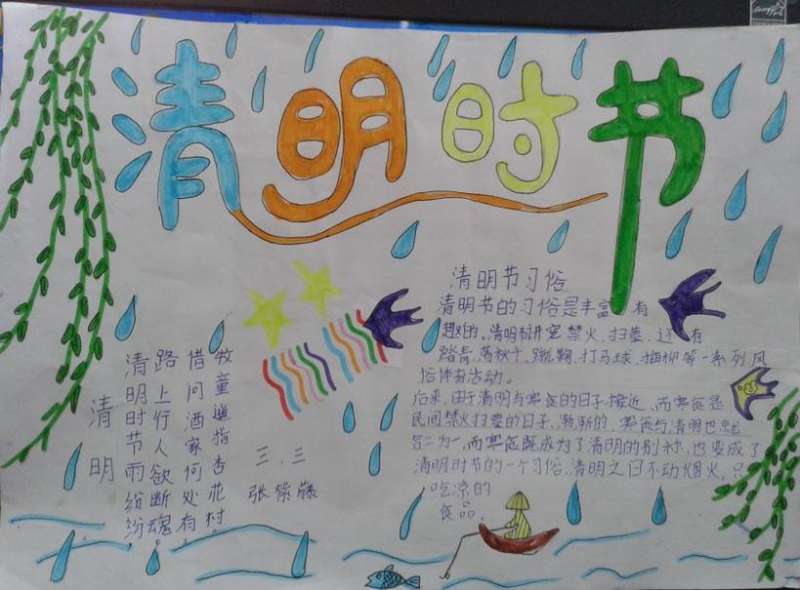 清明时节
清明
清明时节雨纷纷
路上行人欲断魂。
借问酒家何处有
牧童遥指杏花村。
三.三
张紫藤
清明节习俗
清明节的习俗是丰富 有
趣的。清明节讲究禁火、扫墓、还有
踏青、荡秋千、蹴鞠、打马球、插柳等一系列风
俗体育活动。
后来,由于清明与寒食的日子接近,而寒食是
民间禁火扫墓的日子,渐渐的,寒食与清明也
合二为一,而寒食既成为了清明的别称,也变成了
清明时节的一个习俗,清明之日不动烟火,只
吃凉的
食品。